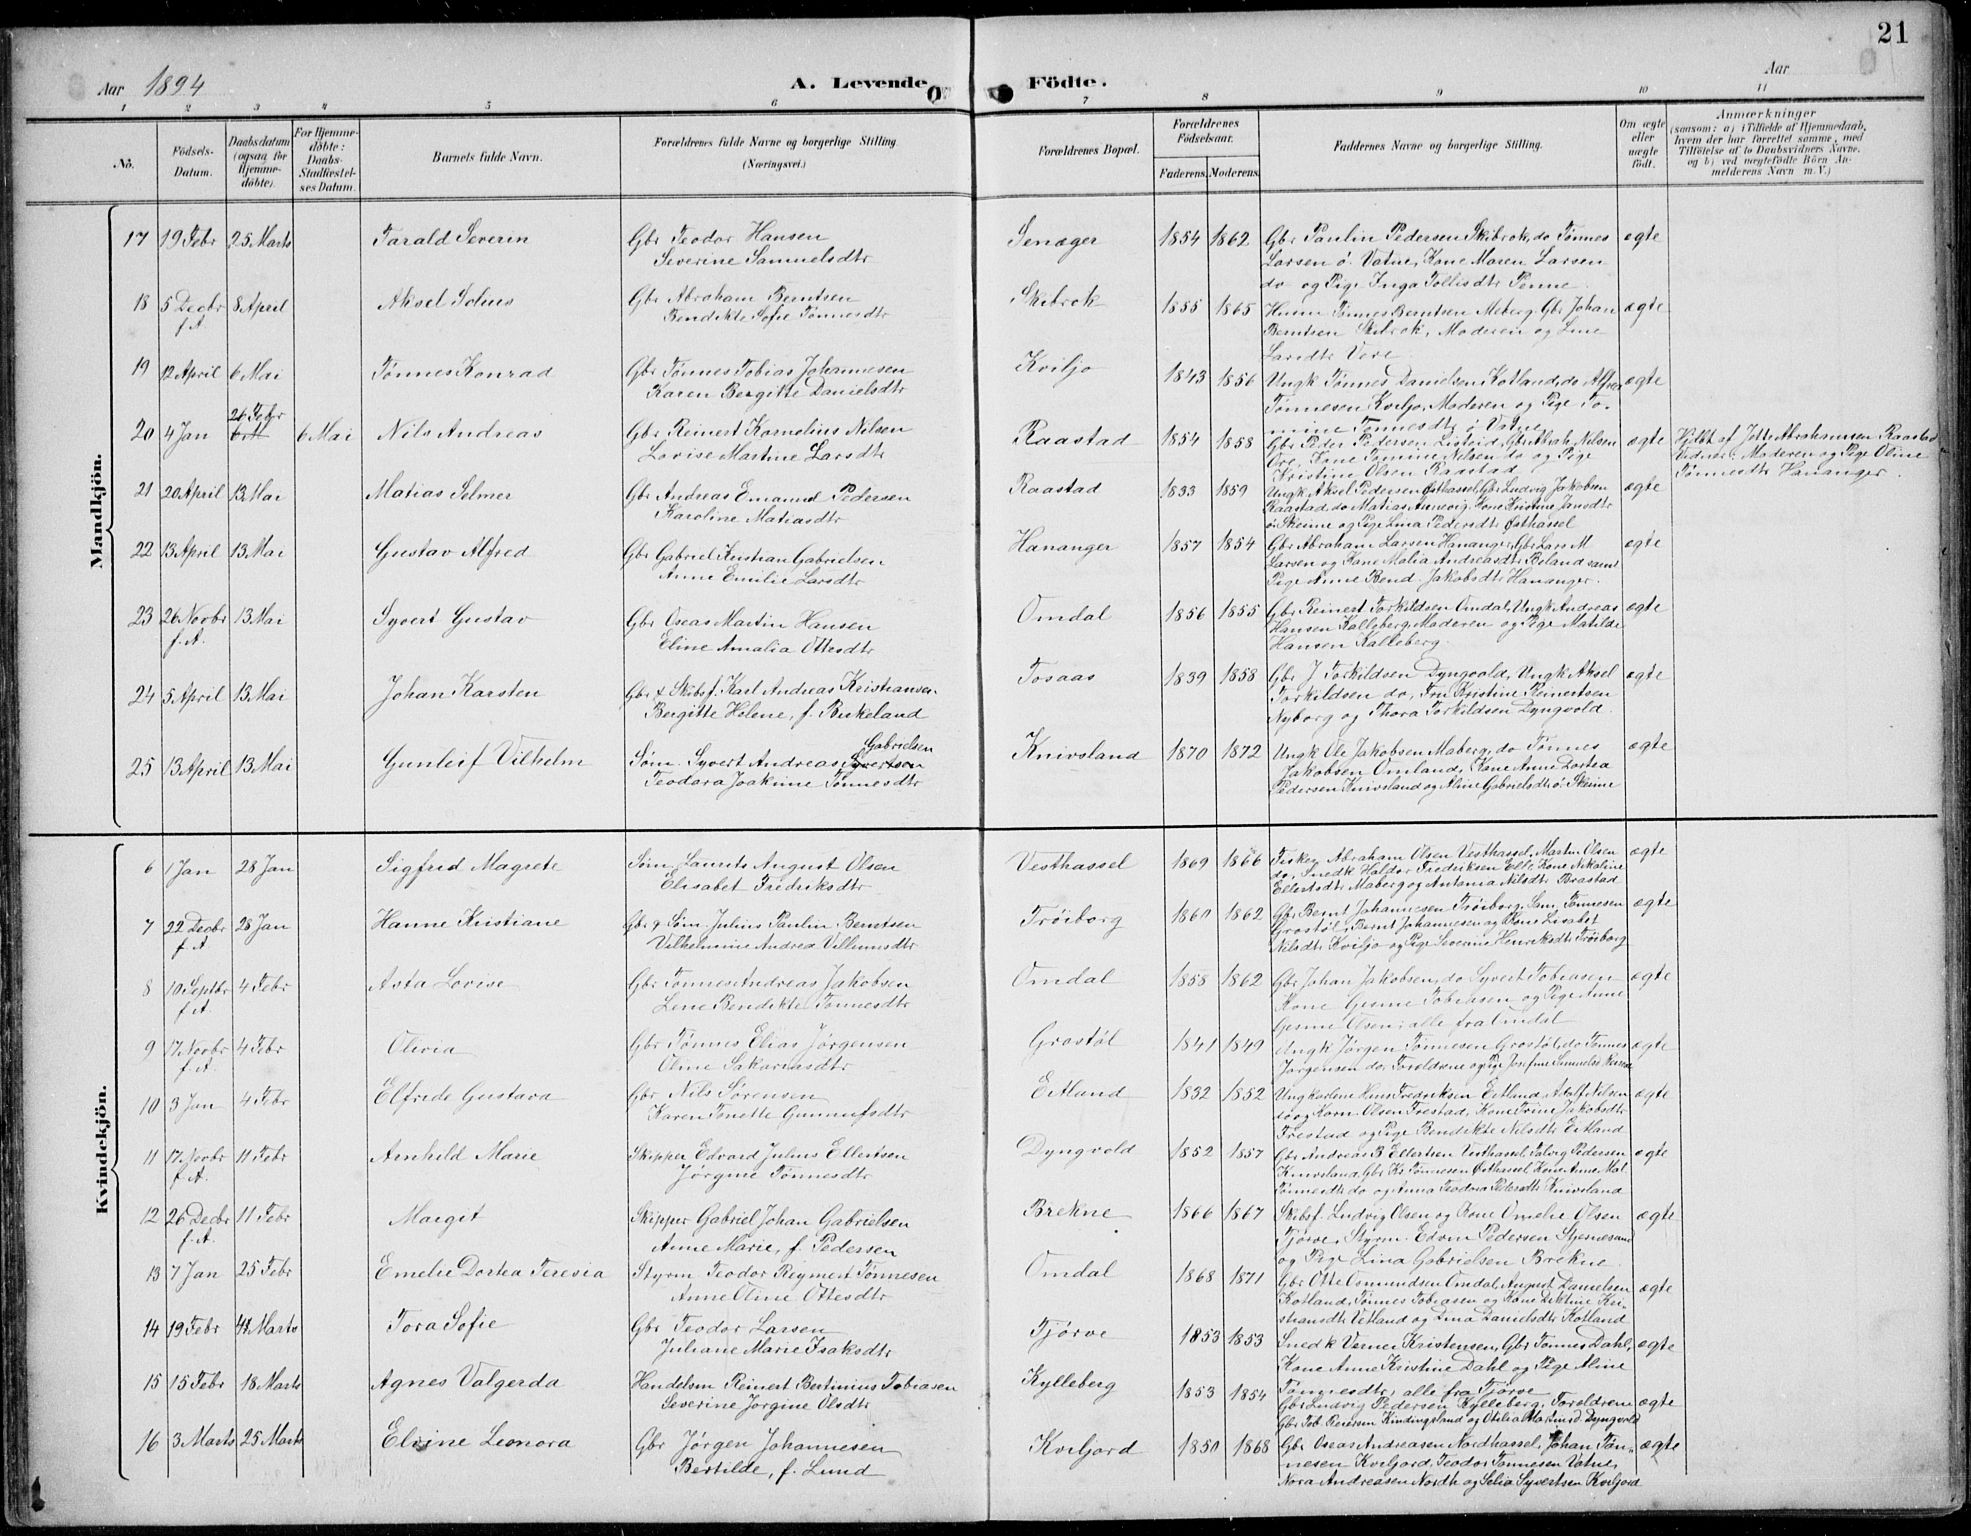 21
Aar 1894
A. Levende Födte.
Aar
1 2 3 4 5 6 7 8 9 10 11
No.
Födsels-Datum.
Daabsdatum (ogsaa for Hjemmedöbte).
For Hjemmedöbte: Daabs-Stadfæstelses Datum.
Barnets fulde Navn.
Forældrenes fulde Navne og borgerlige Stilling (Næringsvei.)
Forældrenes Bopæl.
Forældrenes Födselsaar.
Faderens. Moderens.
Faddernes Navne og borgerlige Stilling.
Om ægte eller uægte födt.
Anmærkninger
(saasom: a) i Tilfælde af Hjemmedaab, hvem der har forrettet samme, med Tilföielse af to Daabsvidners Navne, og b) ved uægtefödte Börn Anmelderens Navn m. V.)
Mandkjön.
17 19 Febr 25 Marts Tarald Severin Gbr Teodor Hansen Senæger 1854 1862 Gbr Paulin Pedersen Skibrok, do Tønnes ægte
Severine Samuelsdtr Larsen ø. Vatne, Kone Maren Larsen
do og Pige Inga Tollisdtr Penne
18 5 Decbr 8 April Aksel Gbr Abraham Berntsen Skibrok 1855 1865 Tønnes Berntsen Meberg, Gbr Johan ægte
f.A Bendikte Sofie Tønnesdtr Berntsen Skibrok, Moderen og Line
Larsdtr Vere
19 12 April 6 Mai Tønnes Konrad Gbr Tønnes Tobias Johannesen Kviljo 1843 1856 Ungk Tønnes Danielsen Kotland, do Alfred ægte
Karen Bergitte Danielsdtr Tønnesen Kviljo, Moderen og Pige To-
mine Tønnesdtr ø Vatne
26 Febr
20 4 Jan 6 Mai Nils Andreas Gbr Reinert Kornelius Nilsen Raastad 1854 1858 Gbr Peder Pedersen Listeid, Gbr Abrah. Nilsen ægte Hjdbt af Abrahamsen Raastad
Lovise Martine Larsdtr Ore, Kone Tomine Nilsen do og Pige Vidner: Moderen og Pige Oline
Kristine Olsen Raastad Tønnesdtr Hananger.
21 20 April 13 Mai Matias Selmer Gbr Andreas Emanuel Pedersen Raastad 1833 1859 Ungk Aksel Pedersen Østhassel, Gbr Ludvig Jakobsen ægte
Karoline Matiasdtr Raastad, do Matias Aunevig, Kone Kristine Jansdtr
ø. Skeime og Pige Lina Pedersdtr Østhassel
22 13 April 13 Mai Gustav Alfred Gbr Gabriel Kristian Gabrielsen Hananger 1857 1854 Gbr Abraham Larsen Hananger, Gbr Lars M ægte
Anne Emilie Larsdtr Larsen og Kone Malia Andreasdtr Beland samt
Pige Anne Bend. Jakobsdtr Hananger.
23 26 Novbr 13 Mai Syvert Gustav Gbr Oseas Martin Hansen Omdal 1856 1855 Gbr Reinert Torkildsen Omdal, Ungk Andreas ægte
f.A. Eline Amalia Ottesdtr Hansen Kalleberg, Moderen og Pige Matilde
Hansen Kalleberg.
24 5 April 13 Mai Johan Karsten Gbr & Skibsf. Karl Andreas Kristiansen Tosaas 1839 1858 Gbr J Torkildsen Dyngvold, Ungk Aksel ægte
Bergitte Helene, f. Birkeland Torkildsen do, Fru Kristine Reinertsen
Nyborg og Thora Torkildsen Dyngvold.
Gabrielsen
25 13 April 13 Mai Gunleif Vilhelm Søm. Syvert Andreas Syvertsen Knivsland 1870 1872 Ungk Ole Jakobsen Maberg, do Tønnes ægte
Teodora Joakime Tønnesdtr Jakobsen Omland, Kone Anne Dortea
Pedersen Knivsland og Aline Gabrielsdtr ø. Skeime
Kvindekjön.
6 1 Jan 28 Jan Sigfrid Magrete Søm Laurits August Olsen Vesthassel 1869 1866 Fisker Abraham Olsen Vesthassel, Martin Olsen ægte
Elisabet Fredriksdtr do, Snedk Haldor Frederiksen Elle, Kone Nikoline
Ellertsdtr Maberg og Antonia Nilsdtr Brastad
7 22 Decbr 28 Jan Hanne Kristiane Gbr & Søm. Julius Paulin Berntsen Trøiborg 1860 1862 Gbr Bernt Johannesen Trøiborg, Sam. Tønnesen ægte
f.A Vilhelmine Andrea Villumsdtr Grostøl, Bernt Johannesen og Kone Lisabet
Nilsdtr Kviljo og Pige Severine Henriksdtr Trøiborg
8 10 Septbr 4 Febr Asta Lovise Gbr Tønnes Andreas Jakobsen Omdal 1858 1862 Gbr Johan Jakobsen, do Syvert Tobiasen ægte
f.A. Lene Bendikte Tønnesdtr Kone Gesine Tobiasen og Pige Anne
Gesine Olsen, alle fra Omdal
9 17 Novbr 4 Febr Olivia Gbr Tønnes Elias Jørgensen Grostøl 1841 1849 Ungk Jørgen Tønnesen Grostøl, do Tønnes ægte
f.A. Oline Sakariasdtr Jørgensen do, Forældrene og Pige Josefine
10 3 Jan 4 Febr Elfrede Gustava Gbr Nils Sørensen Eitland 1832 1852 Ungkarlene Hans Fredriksen Eitland, Adolf Nilsen ægte
Karen Tonette Gunnufsdtr do og Korn. Olsen Frestad, Kone Trine Jakobsdtr
Frestad og Pige Bendikte Nilsdtr Eitland
11 17 Novbr 11 Febr Arnhild Marie Skipper Edvard Julius Ellertsen Dyngvold 1852 1857 Gbr Andreas B Ellertsen Vesthassel, Salvig Pedersen ægte
f.A. Jørgine Tønnesdtr Knivsland, Gbr Kr. Tønnesen Østhassel, Kone Anne Mal.
Tønnesdtr do og Anna Teodora Pedersdtr Knivsland
12 26 Decbr 11 Febr Margit Skipper Gabriel Johan Gabrielsen Brekne 1866 1867 Skibsf. Ludvig Olsen og Kone Omelie Olsen ægte
f.A. Anne Marie, f. Pedersen Tjørve, Styrm. Edvin Pedersen Stjernesund
og Pige Lina Gabrielsen Brekne.
13 7 Jan 25 Febr Emelie Dortea Teresia Styrm Teodor Reymert Tønnesen Omdal 1868 1871 Gbr Otte Osmundsen Omdal, August Danielsen ægte
Anne Oline Ottesdtr Kotland, Tønnes Tobiasen og Kone Diktine Kri-
stiansdtr Vetland og Dina Danielsdtr Kotland
14 19 Febr Marts Tora Sofie Gbr Teodor Larsen Tjørve 1853 1853 Snedk Verner Kristensen, Gbr Tønnes Dahl, ægte
Juliane Marie Isaksdtr Kone Anne Kristine Dahl og Pige Aline
Tønnesdtr, alle fra Tjørve
15 15 Febr 18 Marts Agnes Valgerda Handelsm Reinert Bertinius Tobiasen Kylleberg 1853 1854 Gbr Ludvig Pedersen Kylleberg, Forældrene ægte
Severine Jørgine Olsdtr Gbr Tob. Reiersen Kindingsland og Otilia Dyngvold
16 3 Marts 25 Marts Elvine Leonora Gbr Jørgen Johannesen Kviljord 1850 1868 Gbr Oseas Andreasen Nordhassel, Johan Tøn- ægte
Bertilde, f. Lund nesen Kviljord, Teodor Tønnesen Vatne,
Nora Andreasen Nordh og Selia Syvertsen Kviljord